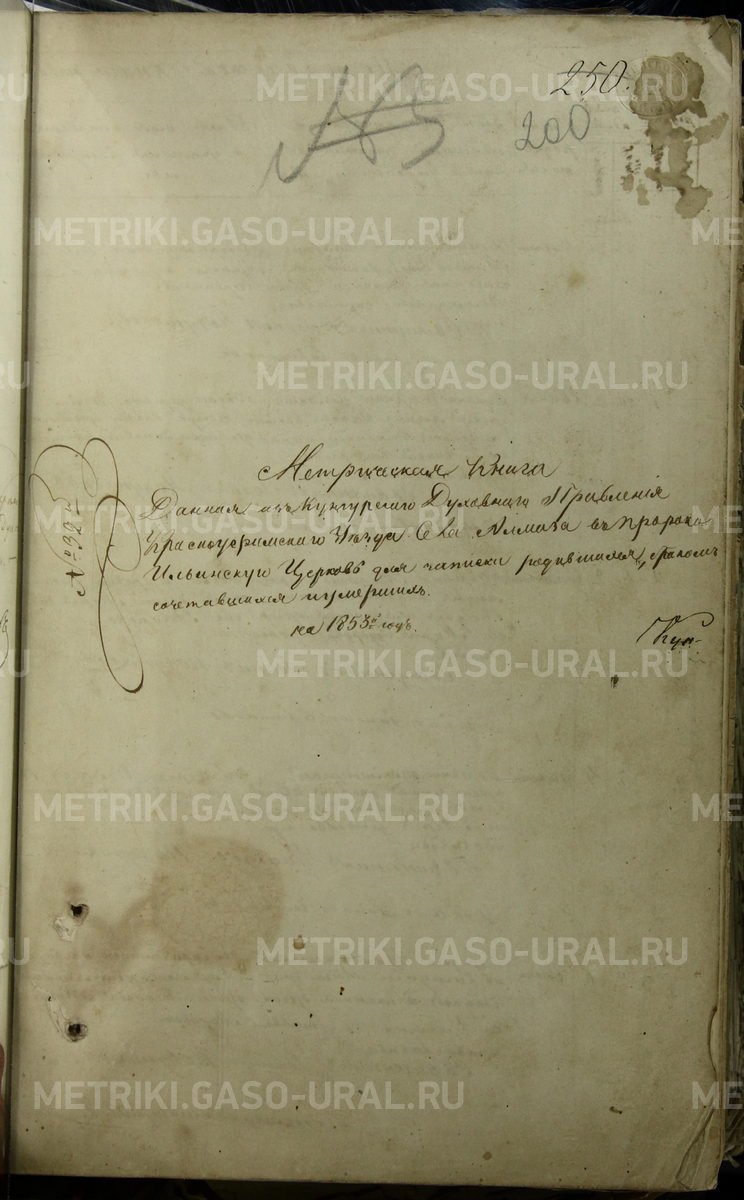 250.
200
№ 32й
Метрическая Книга
Данная изъ Кунгурского Духовного Правления
Красноуфимского Уезда Села Алмаза въ Пророко
Ильинскую Церковь для записки родившихся, браком
сочетавшихся и умерших.
на 1853й годъ.
METRIKI.GASO-URAL.RU